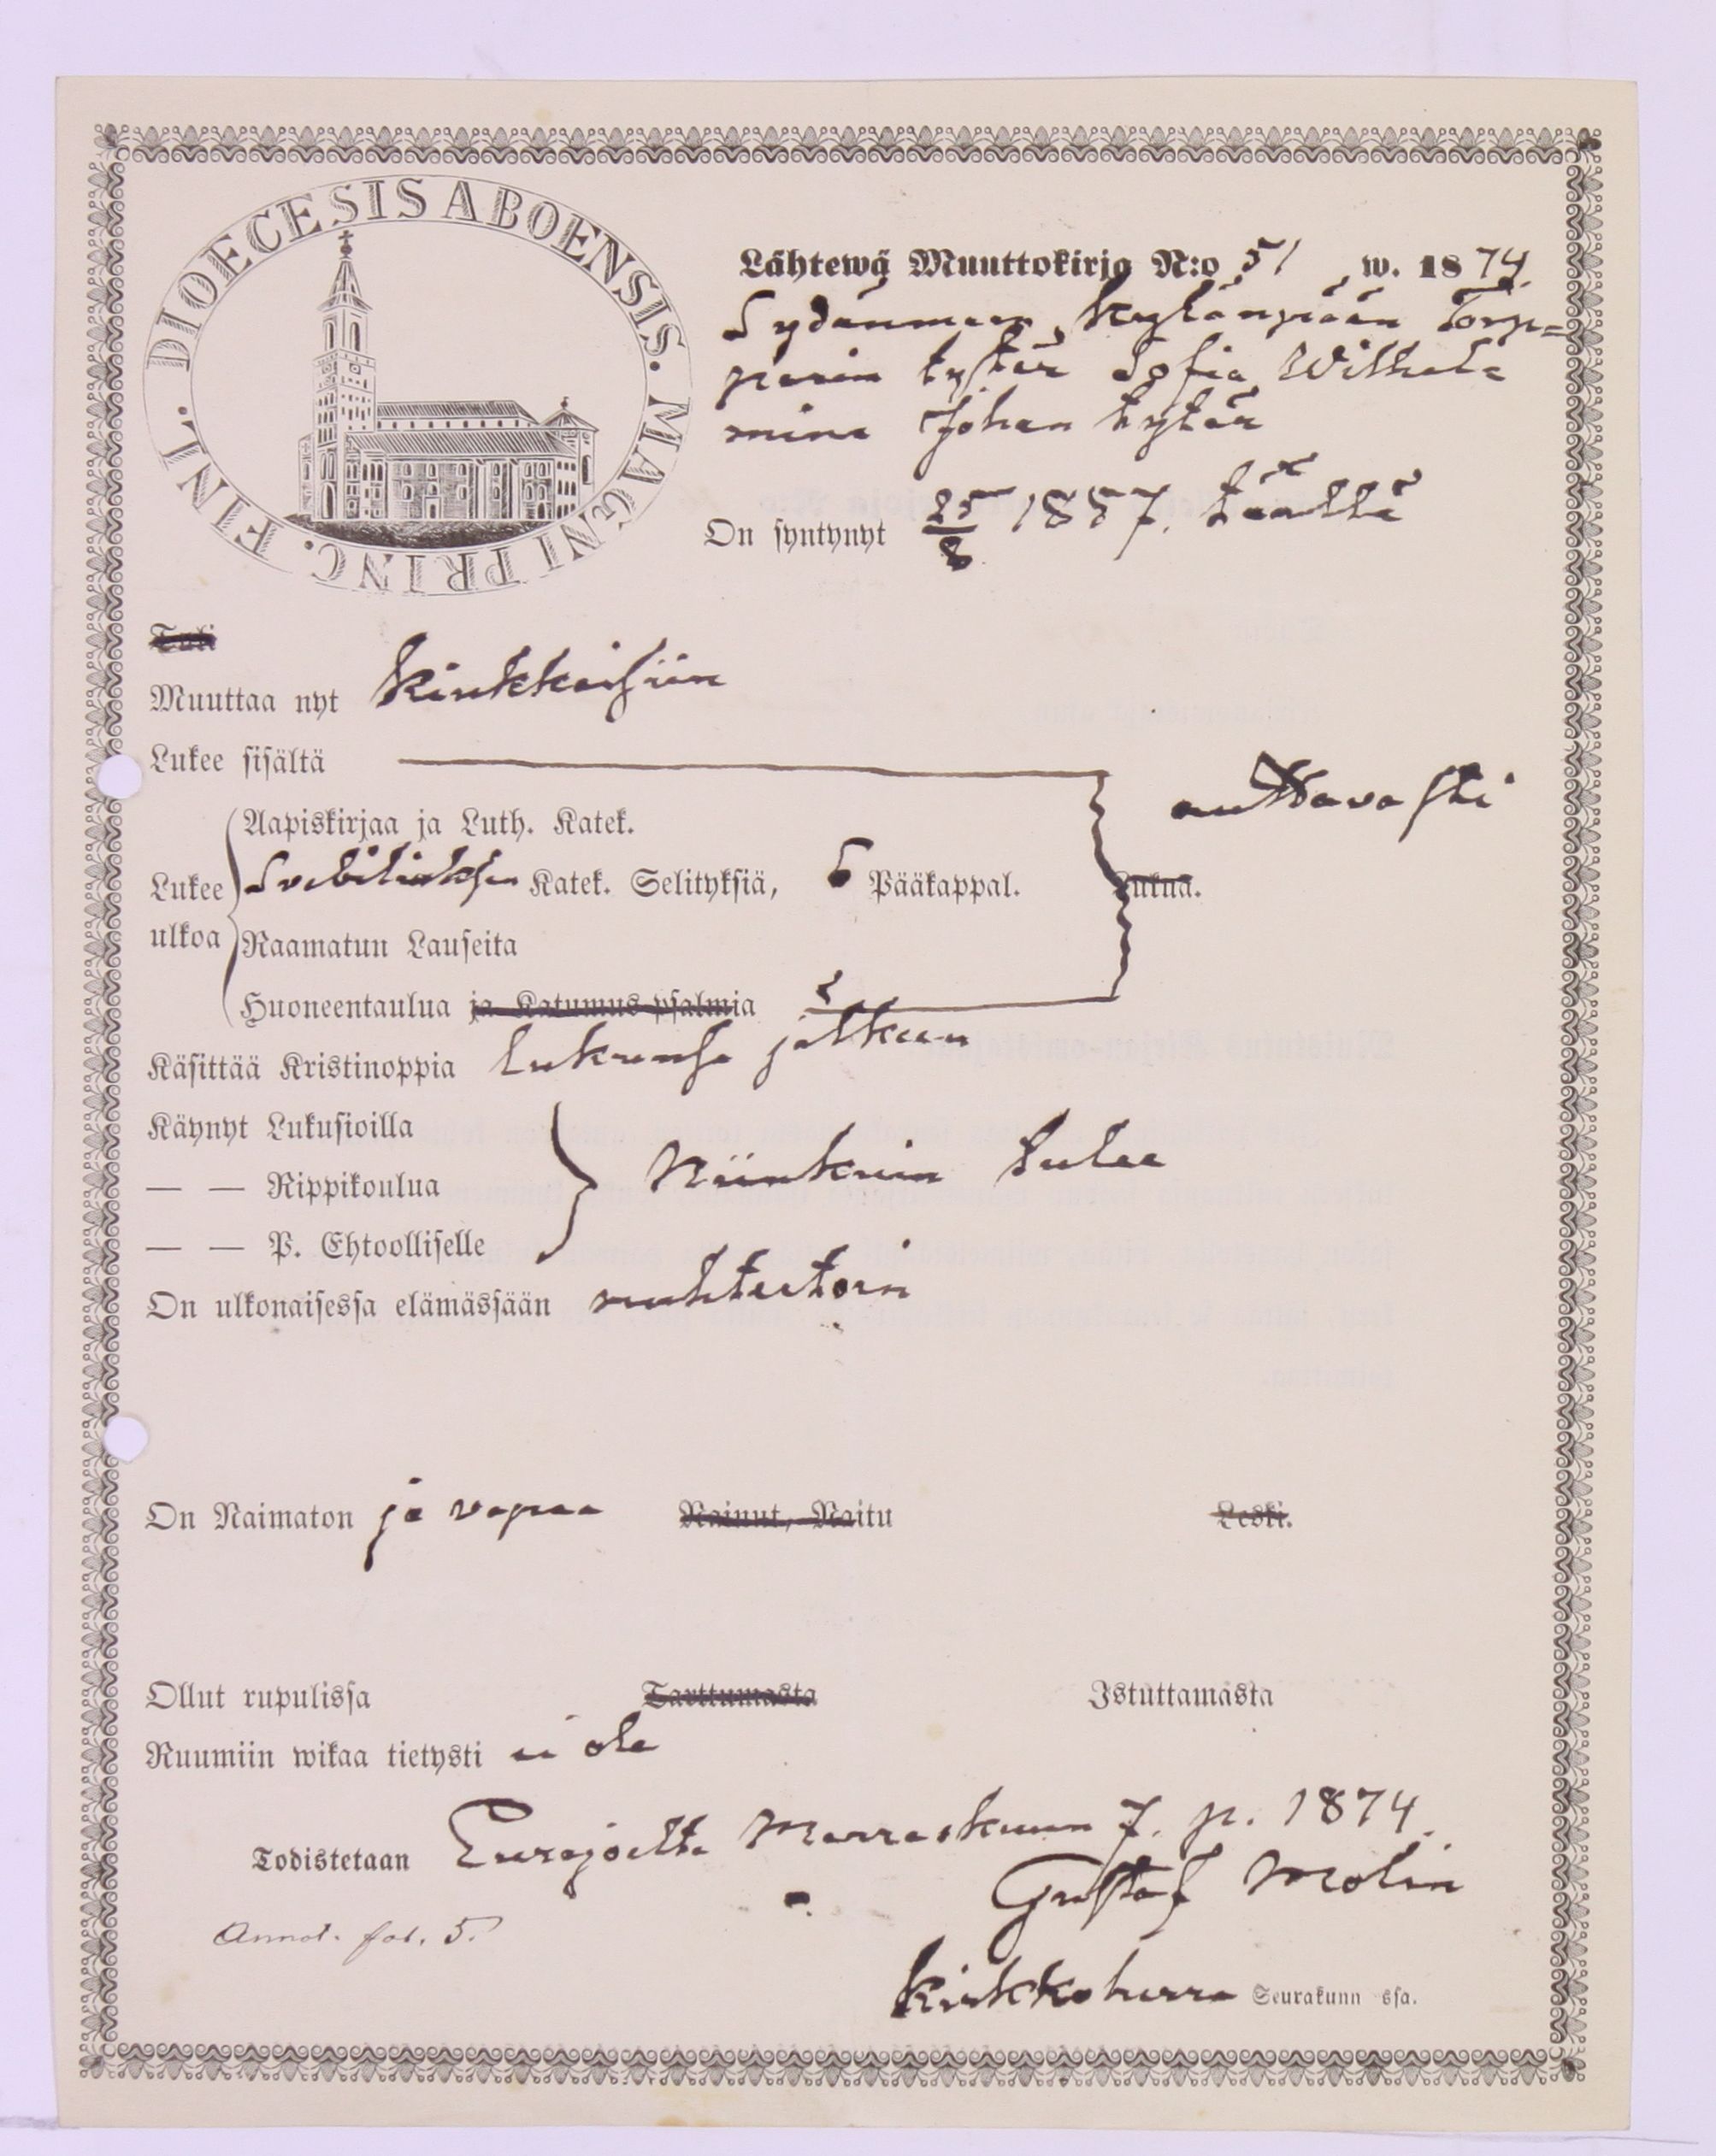 DIOECESIS ABOENSIS. MAGNI PRINC. FINL.
Lähtewä Muuttokirja N:o 51 w. 1874.
Sydänmaan Kylänpään Torp=
parin tytär Sofia Wilhel=
mina Johan tytär
On syntynyt 25/8 1857. täällä
Tuli
Muuttaa nyt Kiukkaisiin
Lukee sisältä auttavasti
Aapiskirjaa ja Luth. Katek.
Lukee ulkoa Svebiliuksen Katek. Selityksiä, 5 Pääkappal. Lukua.
Raamatun Lauseita
Huoneentaulua ja Katumus-psalmia
Käsittää Kristinoppia lukunsa jälkeen
Käynyt Lukusioilla
— — Rippikoulua Niinkuin tulee
— — P. Ehtoolliselle
On ulkonaisessa elämässään nuhteetoin
On Naimaton ja vapaa Nainut, Naitu Leski.
Ollut rupulissa Tarttumasta Istuttamasta
Ruumiin wikaa tietysti ei ole
Todistetaan Eurajoelta Marraskuun 7. p. 1874.
Gustaf Molin
Annot. fol. 5.
Kirkkoherra Seurakunn ssa.